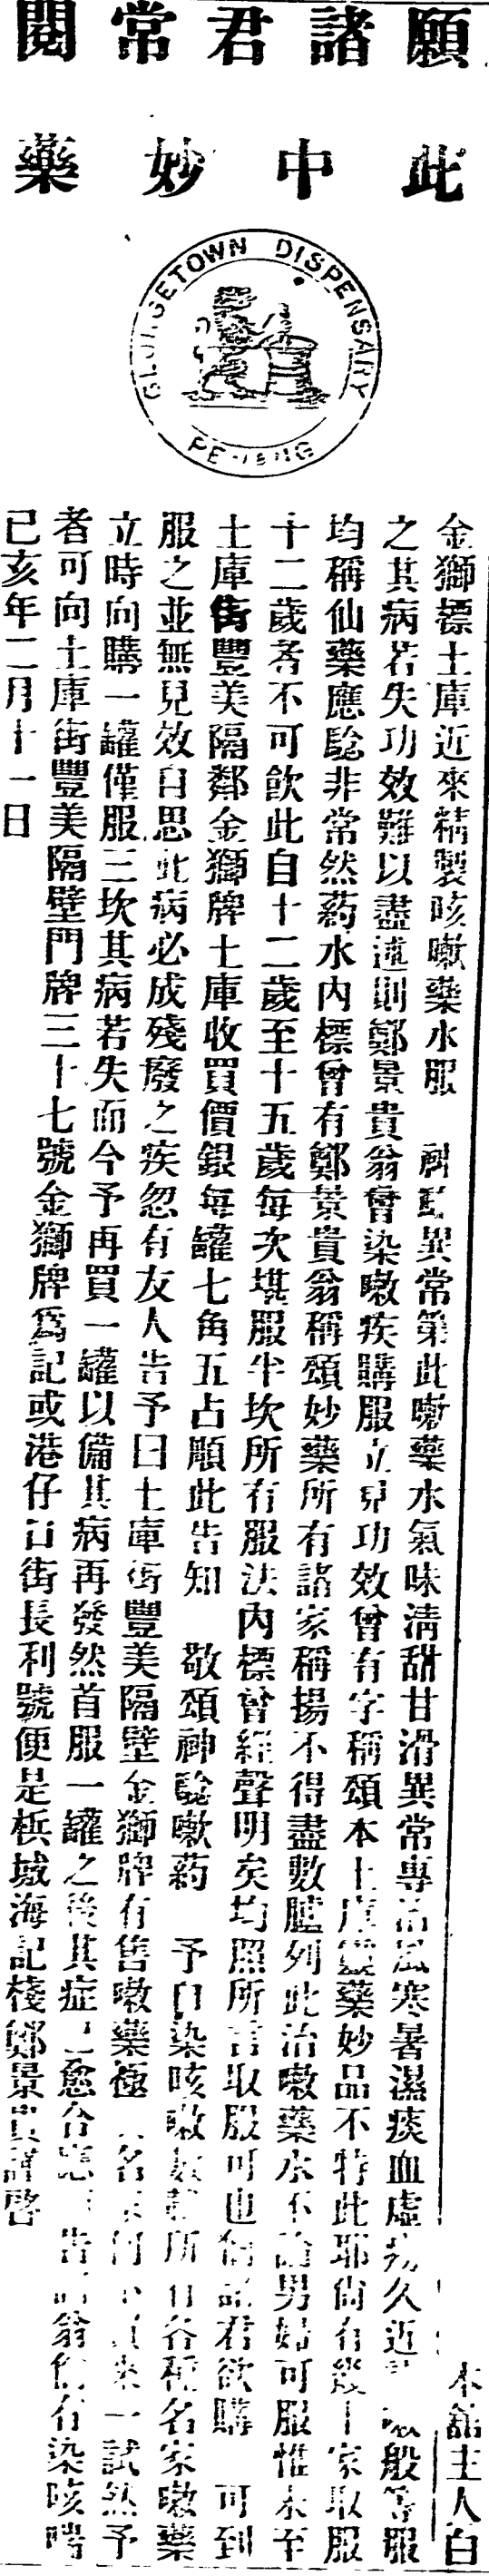 願諸君常閱
此中妙藥
GEORGETOWN DISPENSARY
PENANG
本舘主人白
金獅標土庫近來精製咳嗽藥水服 神騐異常第此嗽藥水氣味清甜甘滑異常專治風寒暑濕痰血虛 久近 般等服
之其病若失功效難以盡述則鄭景貴翁曾染嗽疾購服立見功效曾有字稱頌本土庫靈藥妙品不特此耶尙有幾十家取服
均稱仙藥應騐非常然葯水內標曾有鄭景貴翁稱頌妙藥所有諸家稱揚不得盡數臚列此治嗽藥水不論男婦可服惟未至
十二歲者不可飲此自十二歲至十五歲每次堪服半坎所有服法內標曾經聲明矣均照所言取服可也倘諸君欲購 可到
土庫街豐美隔鄰金獅牌土庫收買價銀每罐七角五占順此告知 敬頌神騐嗽葯 予自染咳嗽 所有各種名家嗽藥
服之並無見效自思此病必成殘廢之疾忽有友人告予曰土庫街豐美隔壁金獅牌有售嗽藥極 名 何不 來一試然予
立時向購一罐僅服三坎其病若失而今予再買一罐以備其病再發然首服一罐之後其症已愈 告 翁 有染咳喘
者可向土庫街豐美隔壁門牌三十七號金獅牌爲記或港仔口街長利號便是檳城海記棧鄭景貴謹啓
己亥年二月十一日